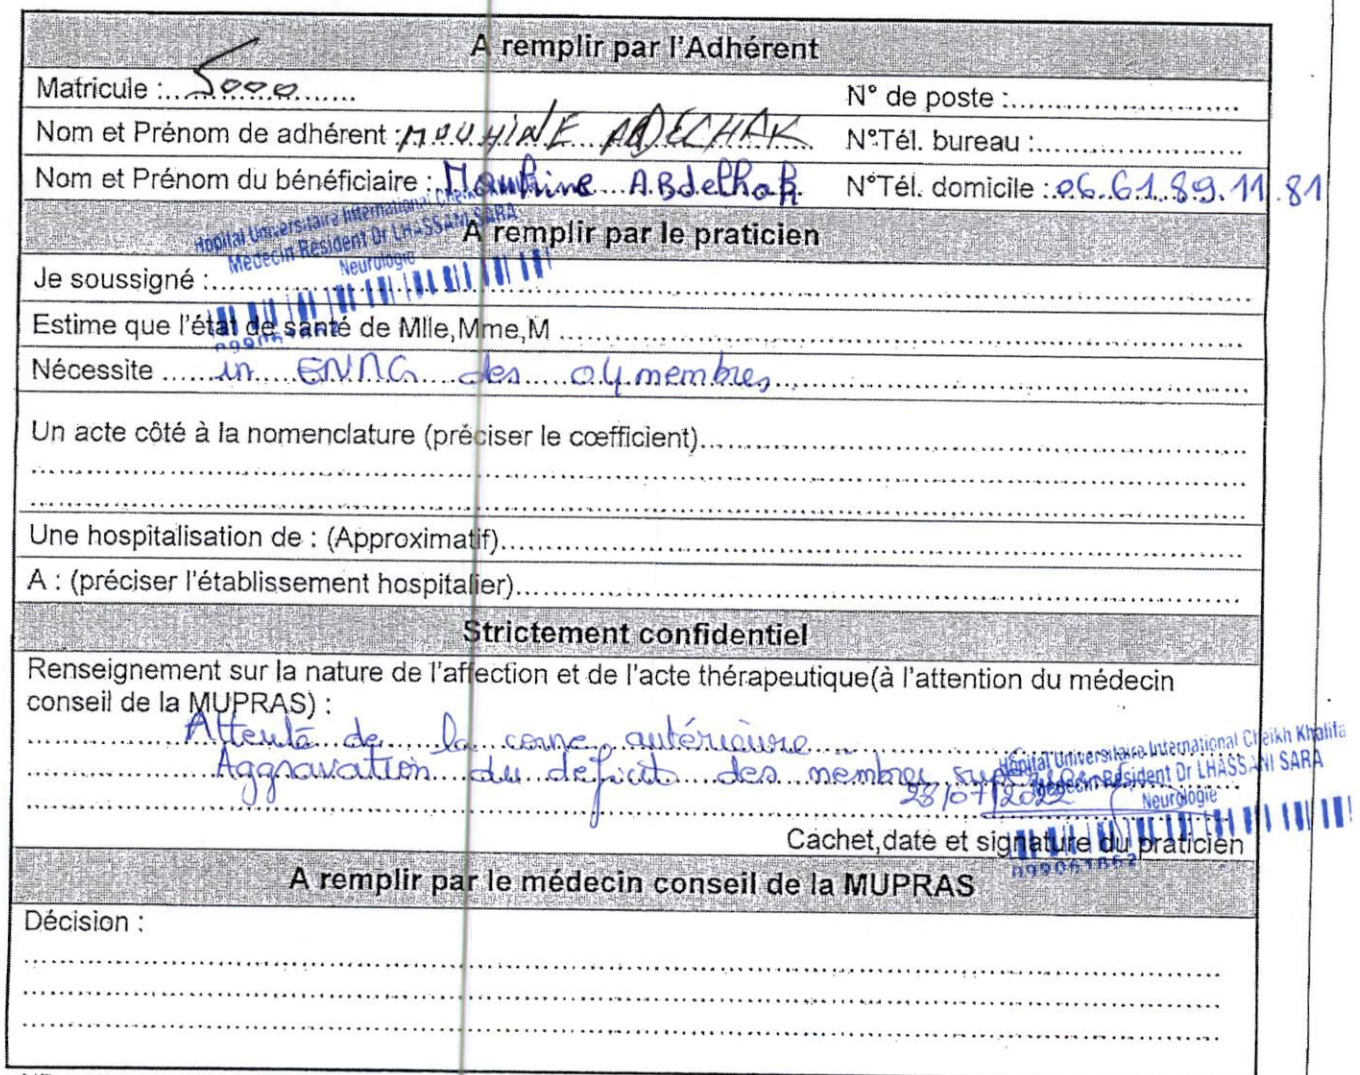 A remplir par l'Adhérent
Matricule : 5000
N° de poste :
Nom et Prénom de adhérent : MOUHINE ABDECHAK
N°Tél. bureau :
Nom et Prénom du bénéficiaire : Mouhine ABdelhak
N°Tél. domicile : 06.61.89.11.81
Hopital Universitaire International Cheikh
Médecin Résident Dr LHASSANI SARA
Neurologie
A remplir par le praticien
Je soussigné :
Estime que l'état de santé de Mlle,Mme,M
Nécessite un ENMG des 04 membres
Un acte côté à la nomenclature (préciser le cœfficient)
Une hospitalisation de : (Approximatif)
A : (préciser l'établissement hospitalier)
Strictement confidentiel
Renseignement sur la nature de l'affection et de l'acte thérapeutique(à l'attention du médecin
conseil de la MUPRAS) :
Atteinte de la corne antérieure
Aggravation du déficit des membres
28/07/2022
Hôpital Universitaire International Cheikh Khalifa
Médecin Résident Dr LHASSANI SARA
Neurologie
Cachet,date et signature du praticien
099061862
A remplir par le médecin conseil de la MUPRAS
Décision :